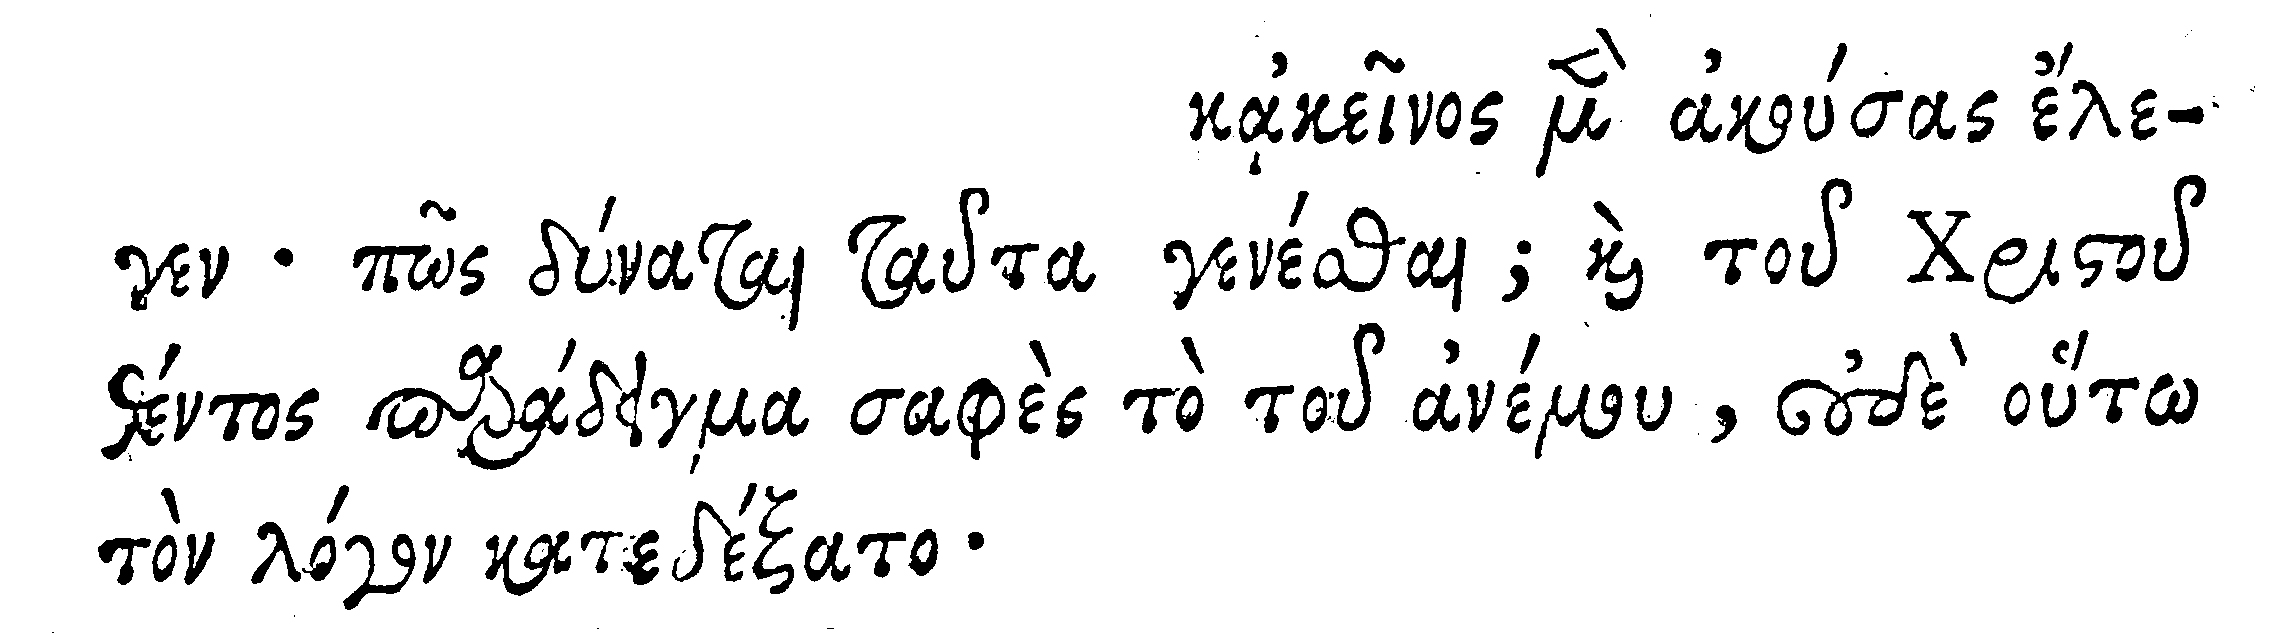 κᾀκεῖνος μὲν ἀκούσας ἔλε-
γεν · πῶς δύναται ταῦτα γενέσθαι; καὶ τοῦ Χριστοῦ
θέντος παράδειγμα σαφὲς τὸ τοῦ ἀνέμου, οὐδὲ οὕτω
τὸν λόγον κατεδέξατο ·